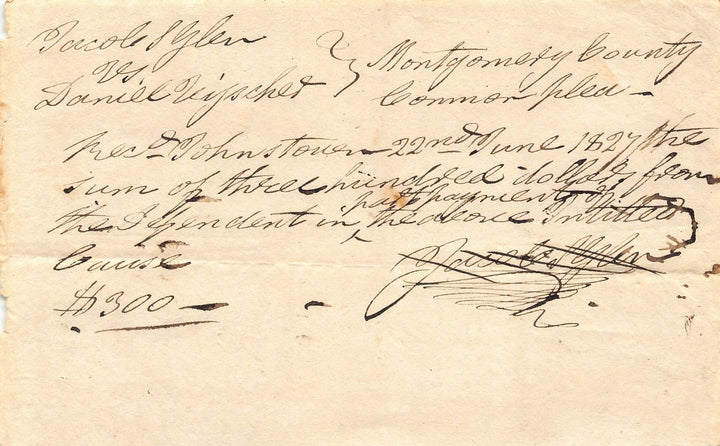 Jacob S Glen
vs
Daniel Veysscher
} Montgomery County
Common plea —
Rec.d Johnstown 22nd June 1827 the
sum of three hundred dollars from
part payment of
the Defendent in ‸ the above Intitled
Cause
Jacob S Glen
$300 —